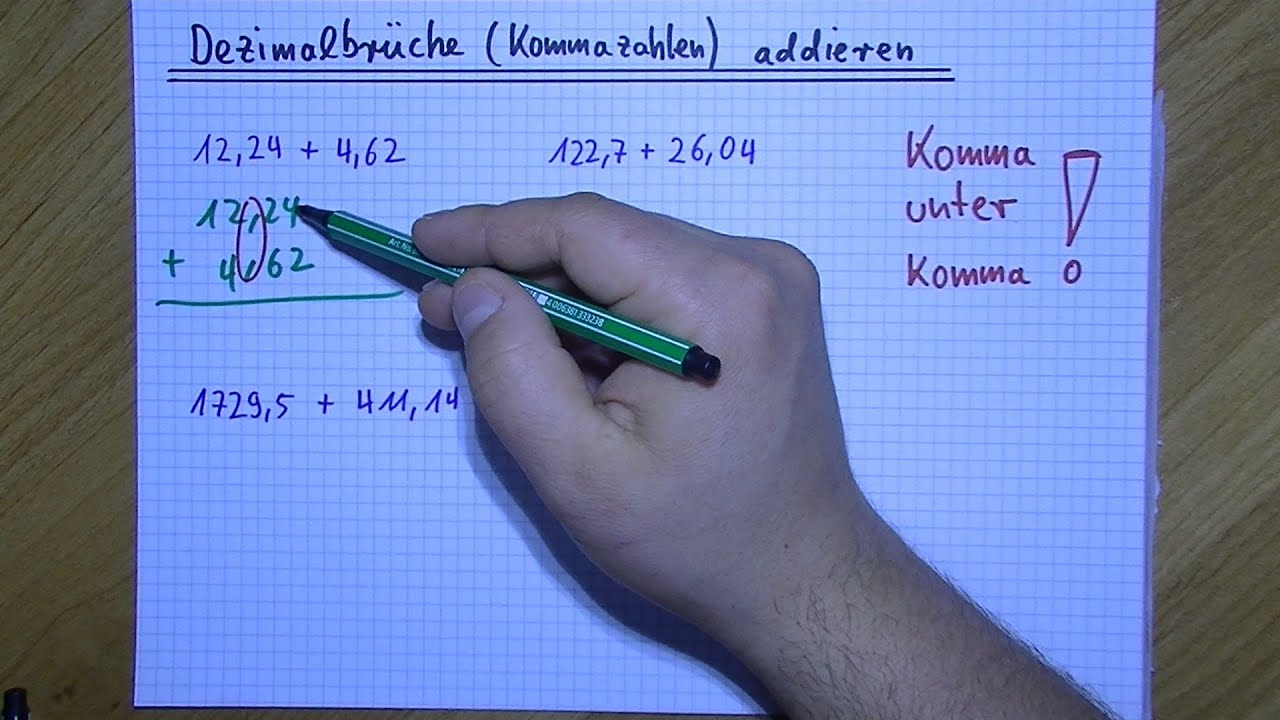 Dezimalbrüche (Kommazahlen) addieren
12,24 + 4,62
122,7 + 26,04
Komma
unter
Komma !
12,24
+ 4,62
1729,5 + 411,14
4 006381 333238